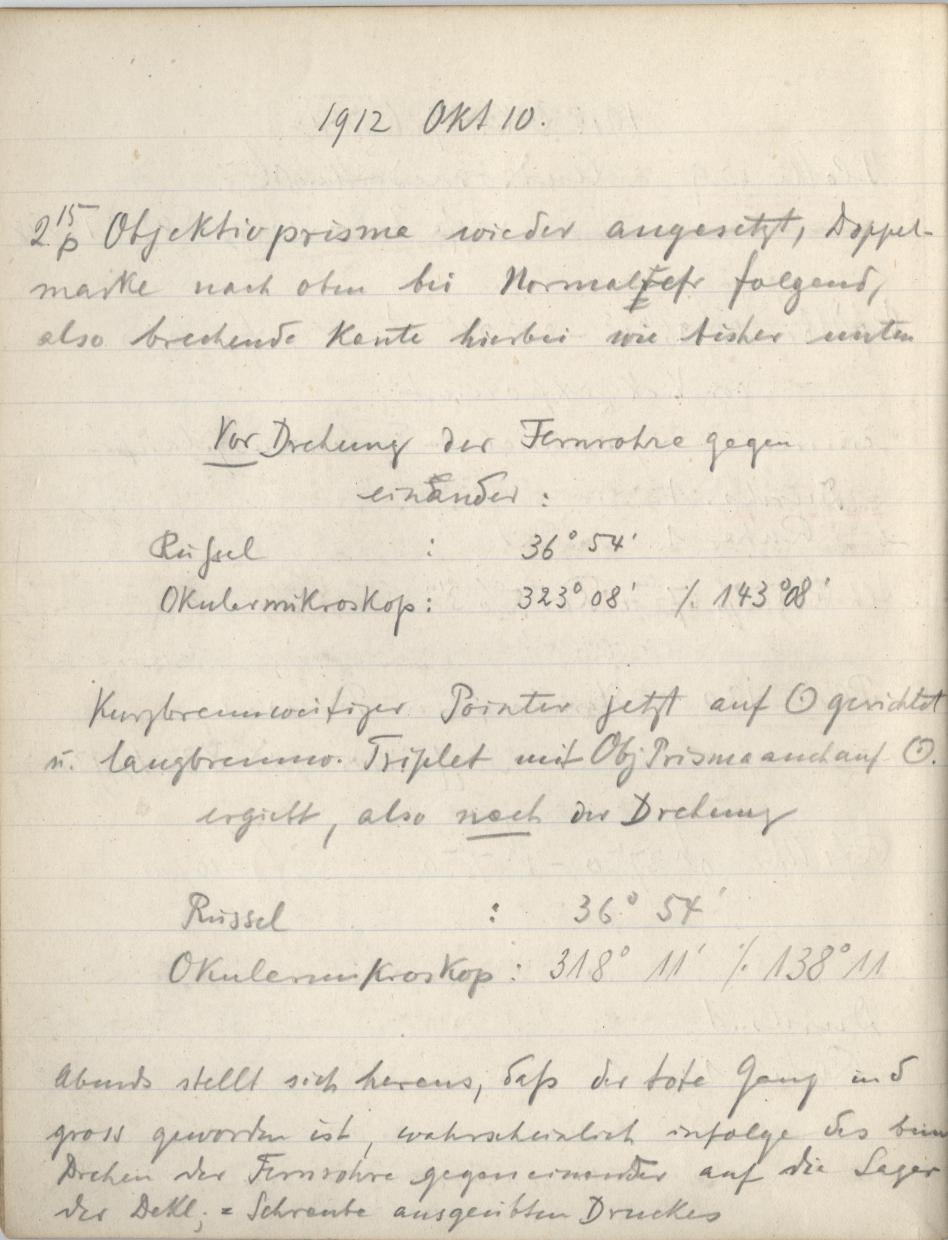 1912 Okt 10.
2 15 p Objektivprisma wieder angesetzt, Doppel-
marke nach oben bei Normal folgend,
also brechende Kante hierbei wie bisher unten
Vor Drehung der Fernrohre gegen
einander :
Rüssel : 36° 54'
Okularmikroskop : 323° 08' ./. 143° 08'
Kurzbrennweitiger Pointer jetzt auf ⊙ gerichtet
u. langbrennw. Triplet mit Obj Prisma auch auf ⊙.
ergiebt, also nach der Drehung
Rüssel : 36° 54'
Okularmikroskop : 318° 11' ./. 138° 11
Abends stellt sich heraus, daß der tote Gang in δ
gross geworden ist, wahrscheinlich infolge des beim
Drehen der Fernrohre gegeneinander auf die Lager
der Dekl. = Schraube ausgeübten Druckes